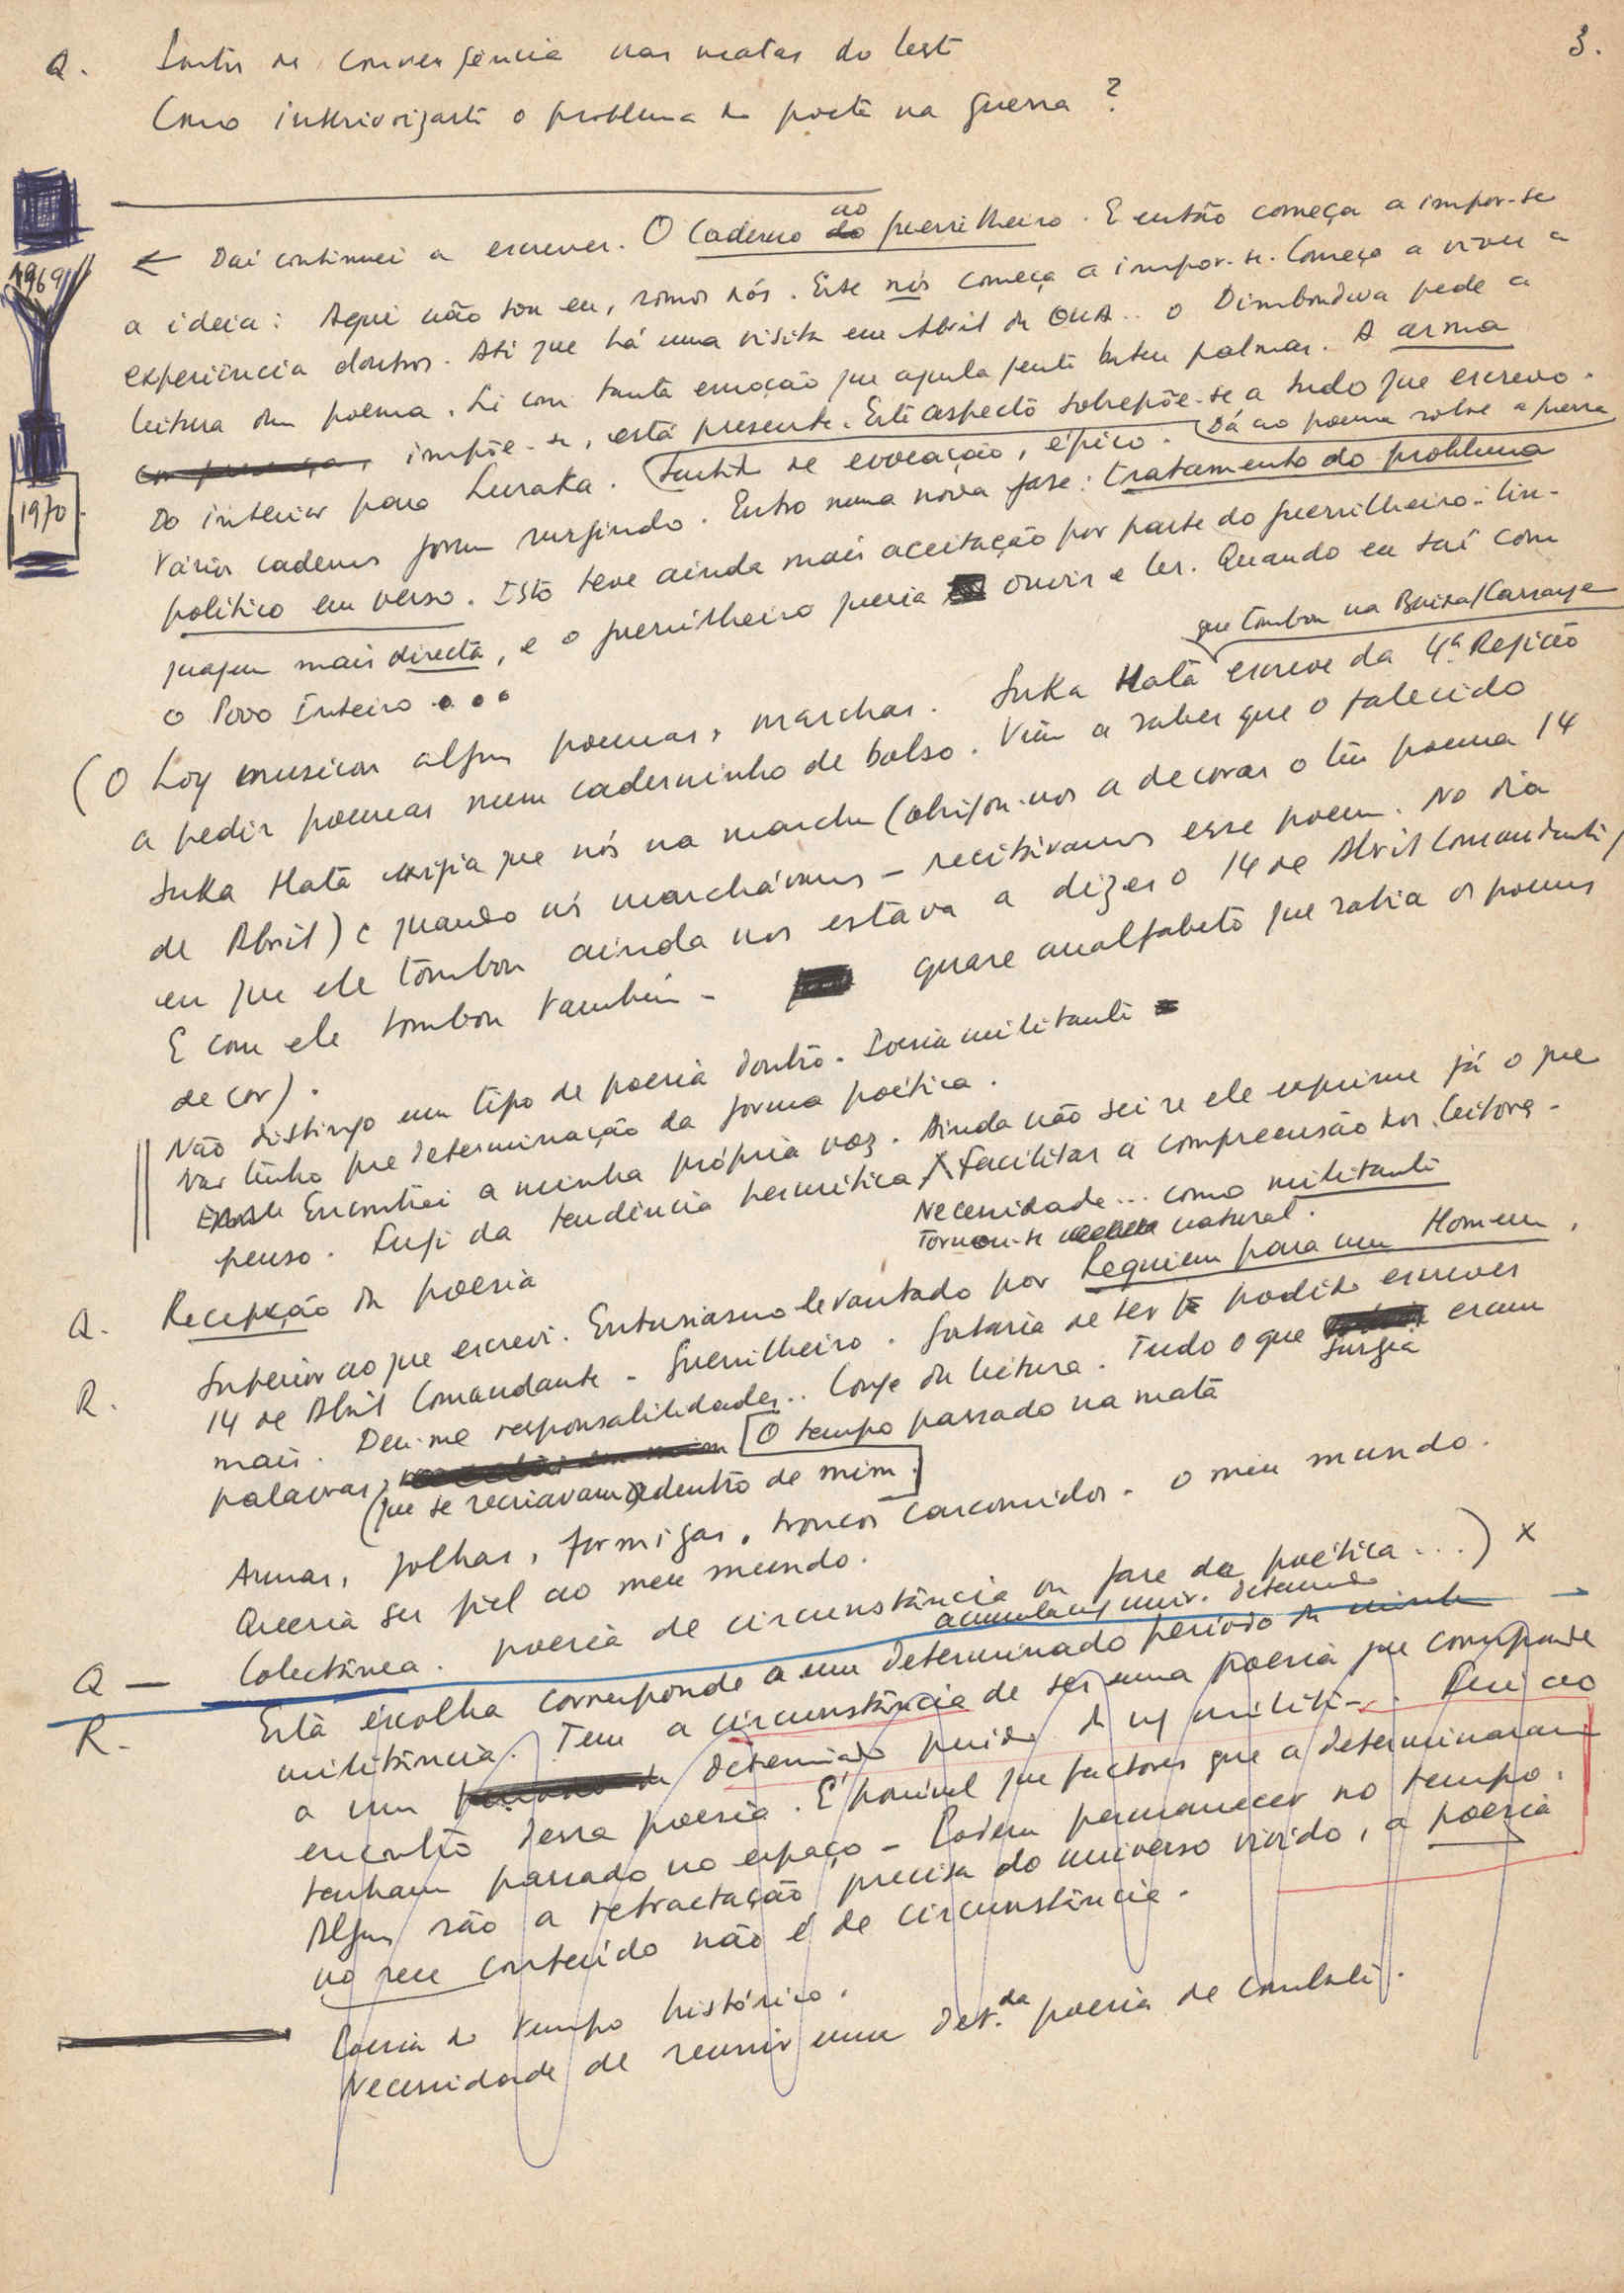 3.
Q. Pontos de convergência nas matas do leste
Como interiorizaste o problema do poeta na guerra?
1969
1970
← Daí continuei a escrever. O Caderno do ao guerrilheiro. E então começa a impor-se
a ideia: Aqui não sou eu, somos nós. Este nós começa a impor-se. Começo a viver a
experiência doutros. Até que há uma visita em Abril da OUA.. o Dimbondwa pede a
leitura dum poema. Li com tanta emoção que aquela gente bateu palmas. A arma
impõe-se, está presente. Este aspecto sobrepõe-se a tudo que escrevo.
Do interior para Lusaka. Sentido de evocação, épico. Dá ao poema sobre a guerra
Vários cadernos foram surgindo. Entro numa nova fase: tratamento do problema
político em verso. Isto teve ainda mais aceitação por parte do guerrilheiro: lin-
guagem mais directa, e o guerrilheiro queria ouvir e ler. Quando eu saí com
o Povo Inteiro...
que tombou na Baixa/Cassanje
(O Loy musicou alguns poemas, marchas. Suka Hata escreve da 4ª Região
a pedir poemas num caderninho de bolso. Vim a saber que o falecido
Suka Hata exigia que nós na marcha (obrigou-nos a decorar o teu poema 14
de Abril) e quando nós marchávamos - recitávamos esse poema. No dia
em que ele tombou ainda nos estava a dizer o 14 de Abril Comandante/
E com ele tombou também - quase analfabeto que sabia os poemas
de cor).
Não distingo um tipo de poesia doutro. Poesia militante
Não tenho predeterminação da forma poética.
Encontrei a minha própria voz. Ainda não sei se ele exprime já o que
penso. Fugi da tendência hermética. Facilitar a compreensão dos leitores.
Necessidade... como militante
Tornou-se natural.
Q. Recepção da poesia
R. Superior ao que escrevi. Entusiasmo levantado por Requiem para um Homem,
14 de Abril Comandante - Guerrilheiro. Gostaria de ter podido escrever
mais. Deu-me responsabilidades.. Longe da leitura. Tudo o que surgia eram
palavras, O tempo passado na mata
(que se recriavam) dentro de mim.
Armas, folhas, formigas, troncos carcomidos. o meu mundo.
Queria ser fiel ao meu mundo.
Q - Colectânea. poesia de circunstância ou fase da poética...) x
R. Esta escolha corresponde a um determinado período da minha
militância. Tem a circunstância de ser uma poesia que corresponde
a um determinado período da militân-. Fui ao
encontro dessa poesia. É possível que factores que a determinaram
tenham passado no espaço - Podem permanecer no tempo.
Alguns são a retractação precisa do universo vivido, a poesia
no seu conteúdo não é de circunstância.
Poesia do tempo histórico.
Necessidade de reunir uma det.da poesia de combate.